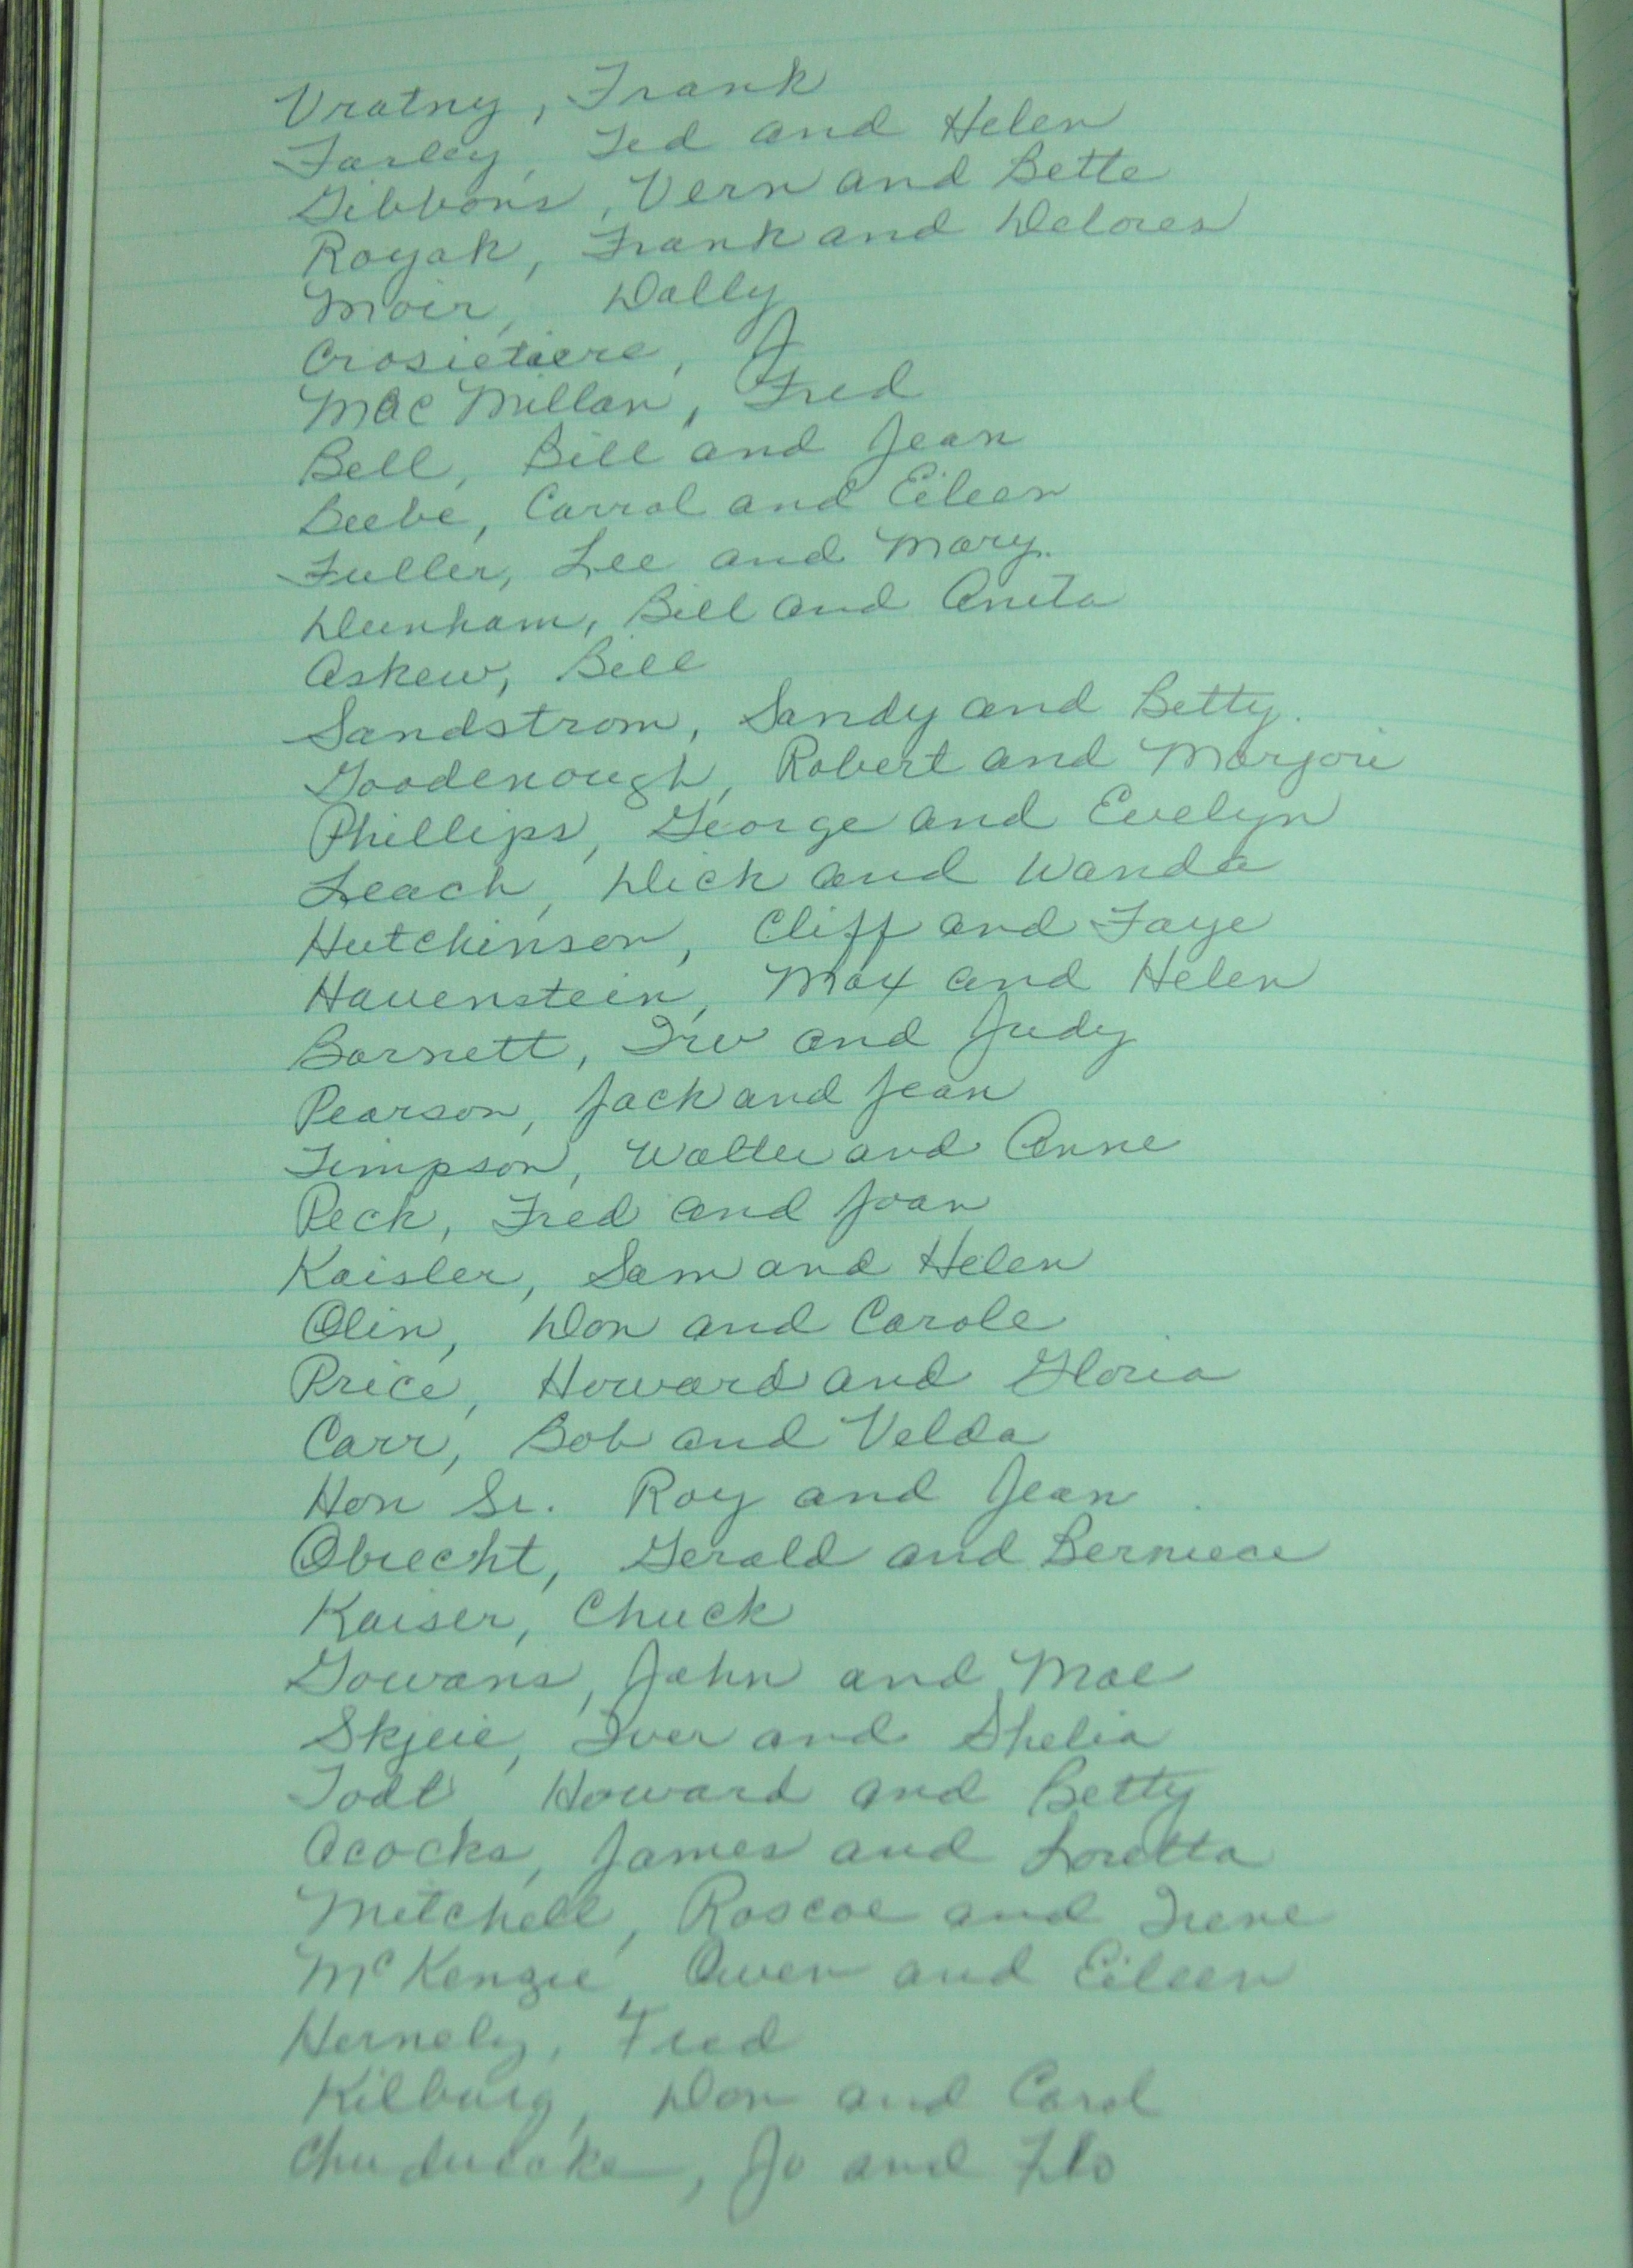 Vratny, Frank
Farley, Ted and Helen
Gibbons, Vern and Bette
Royak, Frank and Delores
Moir, Wally
Crosietiere, J
MacMillan, Fred
Bell, Bill and Jean
Beebe, Carrol and Eileen
Fuller, Lee and Mary.
Dunham, Bill and Anita
Askew, Bill
Sandstrom, Sandy and Betty.
Goodenough, Robert and Marjorie
Phillips, George and Evelyn
Leach, Dick and Wanda
Hutchinson, Cliff and Faye
Hauenstein, Max and Helen
Barnett, Irv and Judy
Pearson, Jack and Jean
Timpson, Walter and Anne
Peck, Fred and Joan
Kaisler, Sam and Helen
Olin, Don and Carole
Price, Howard and Gloria
Carr, Bob and Velda
Hon Sr. Roy and Jean
Obrecht, Gerald and Berniece
Kaiser, Chuck
Gowans, John and Mae
Skjeie, Iver and Shelia
Todt, Howard and Betty
Acocks, James and Loretta
Mitchell, Roscoe and Irene
McKenzie, Owen and Eileen
Hernely, Fred
Kilburg, Don and Carol
Jo and Flo